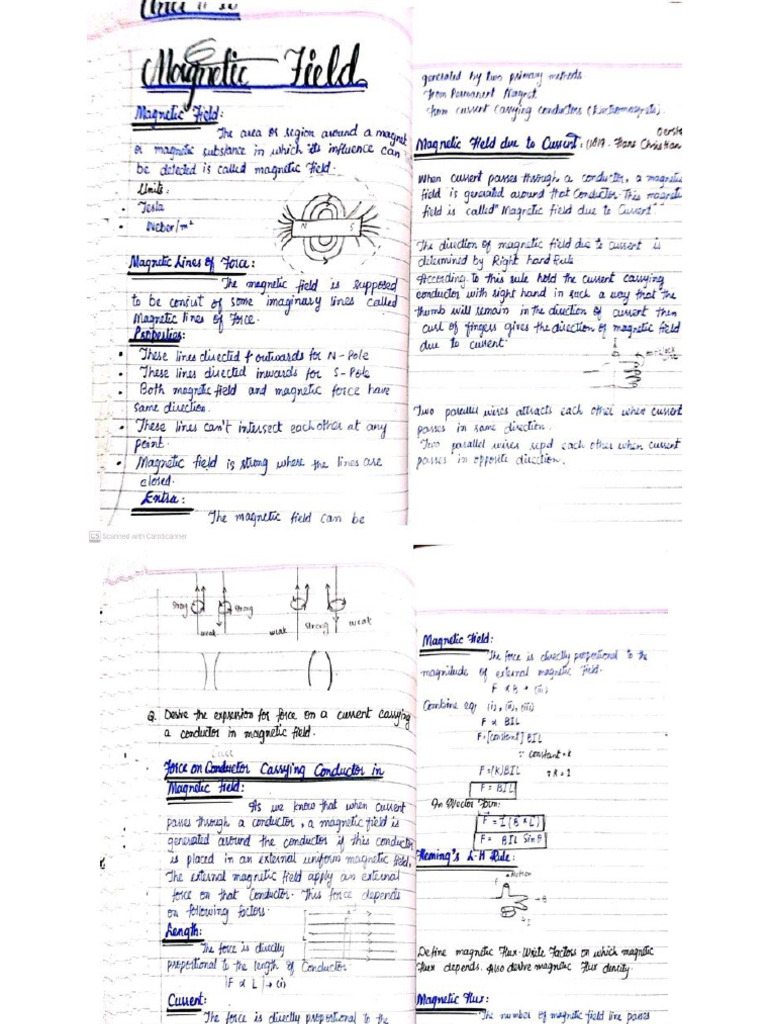 Magnetic Field
Magnetic Field:
The area or region around a magnet
or magnetic substance in which its influence can
be detected is called magnetic field.
Units:
• Tesla
• Weber/m²
N S
Magnetic Lines of Force:
The magnetic field is supposed
to be consist of some imaginary lines called
Magnetic lines of Force.
Properties:
• These lines directed outwards for N-Pole
• These lines directed inwards for S-Pole
• Both magnetic field and magnetic force have
same direction.
• These lines can't intersect each other at any
point.
• Magnetic field is strong where the lines are
closed.
Extra:
The magnetic field can be
CS Scanned with CamScanner
generated by two primary methods
from Permanent Magnet
from current carrying conductors (Electromagnets).
Magnetic Field due to Current: Hans Christian
When current passes through a conductor, a magnetic
field is generated around that Conductor. This magnetic
field is called "Magnetic field due to Current"
The direction of magnetic field due to current is
determined by Right hand Rule
According to this rule hold the current carrying
conductor with right hand in such a way that the
thumb will remain in the direction of current then
curl of fingers gives the direction of magnetic field
due to current.
Two parallel wires attracts each other when current
passes in same direction.
Two parallel wires repel each other when current
passes in opposite direction.
strong strong
weak weak strong weak
Q. Derive the expression for force on a current carrying
a conductor in magnetic field.
Force on Conductor Carrying Conductor in
Magnetic Field:
As we know that when current
passes through a conductor, a magnetic field is
generated around the conductor if this conductor
is placed in an external uniform magnetic field,
The external magnetic field apply an external
force on that Conductor. This force depends
on following factors.
Length:
The force is directly
proportional to the length of Conductor
F ∝ L → (i)
Current:
The force is directly proportional to the
Magnetic Field:
The force is directly proportional to the
magnitude of external magnetic field.
F ∝ B → (iii)
Combine eq (i), (ii), (iii)
F ∝ BIL
F = [constant] BIL
∵ constant = k
F = (K) BIL ∵ K = 1
F = BIL
In Vector Form:
F = I (B × L)
F = BIL Sinθ
Fleming's L-H Rule:
Motion
F
B
I
Define magnetic Flux. Write Factors on which magnetic
flux depends. Also derive magnetic flux density.
Magnetic Flux:
The number of magnetic field line passes